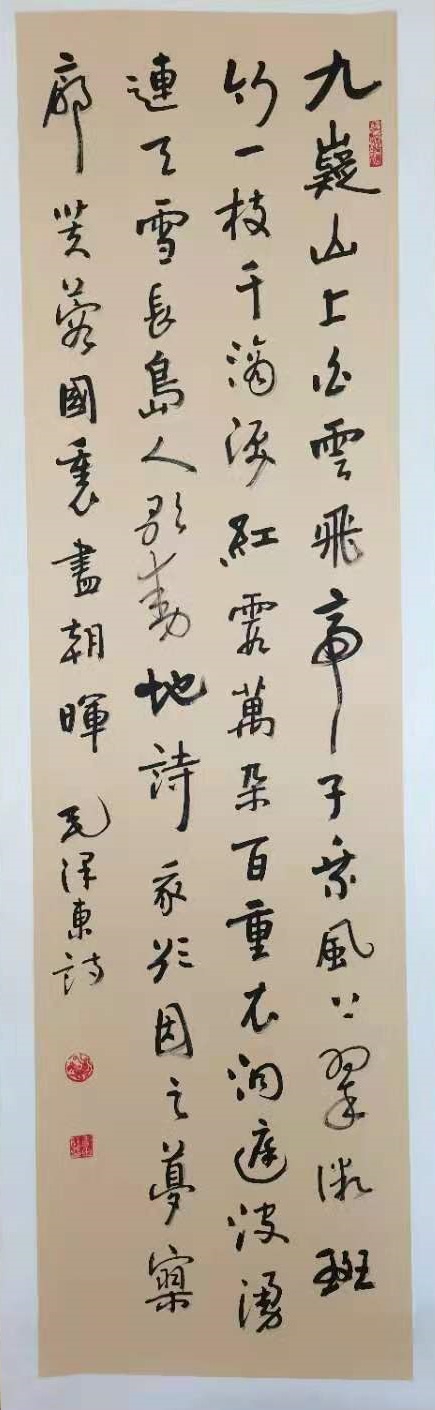 九嶷山上白雲飛帝子乘風下翠微斑
竹一枝千滴淚紅霞萬朵百重衣洞庭波湧
連天雪長島人歌動地詩我欲因之夢寥
廓芙蓉國裏盡朝暉 毛澤東詩